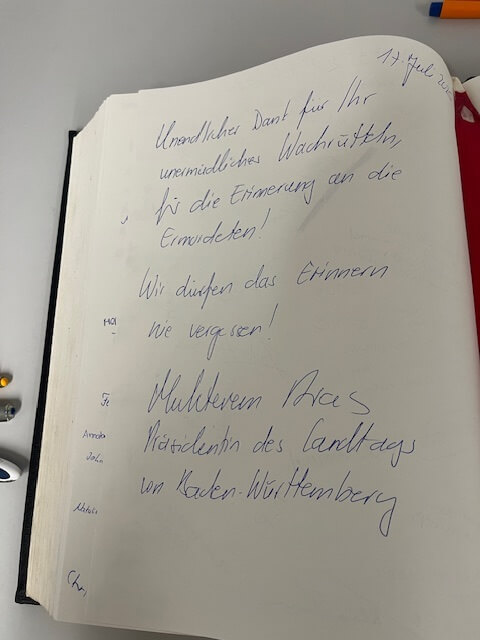 17. Juli
Unendlicher Dank für Ihr
unermüdliches Wachrütteln,
für die Erinnerung an die
Ermordeten!
Wir dürfen das Erinnern
nie vergessen!
Muhterem Aras
Präsidentin des Landtags
von Baden-Württemberg